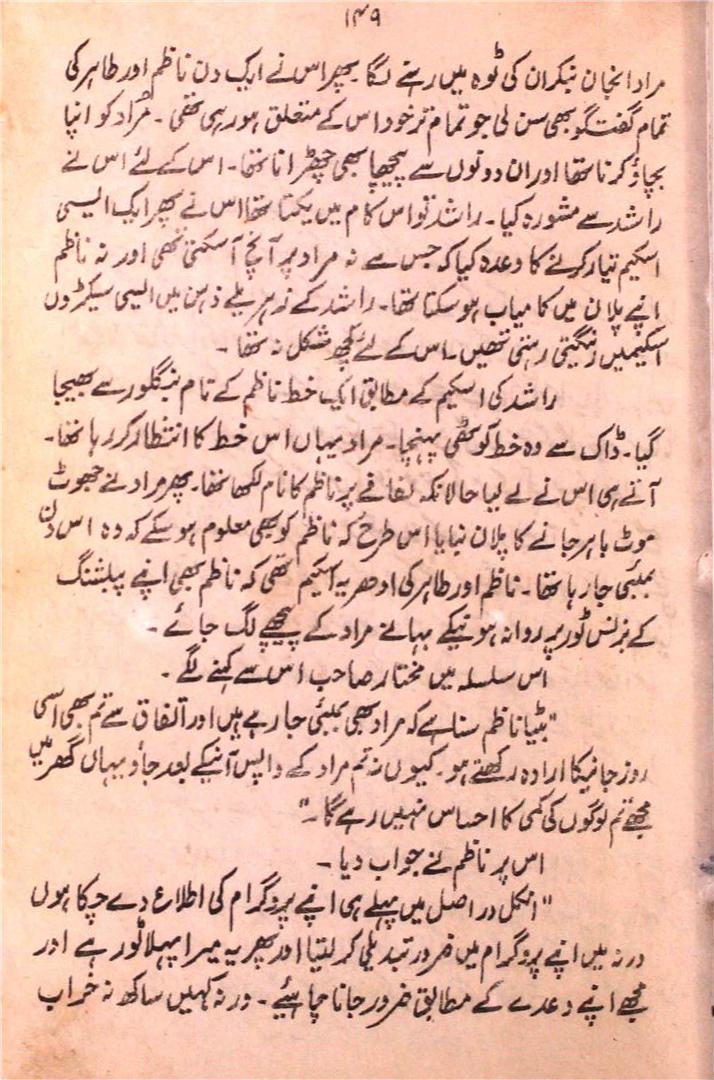 ۱۴۹
مراد انجان بنکر ان کی ٹوہ میں رہنے لگا۔ پھر اس نے ایک دن ناظم اور طاہر کی
تمام گفتگو بھی سن لی جو تمام تر خود اس کے متعلق ہو رہی تھی۔ مُراد کو اپنا
بچاؤ کرنا تھا اور ان دونوں سے پیچھا بھی چھڑانا تھا۔ اس کے لئے اس نے
راشد سے مشورہ کیا۔ راشد تو اس کام میں یکتا تھا اس نے پھر ایک ایسی
اسکیم تیار کرنے کا وعدہ کیا کہ جس سے نہ مراد پر آنچ آ سکتی تھی اور نہ ناظم
اپنے پلان میں کامیاب ہو سکتا تھا۔ راشد کے زہریلے ذہن میں ایسی سیکڑوں
اسکیمیں رینگتی رہتی تھیں۔ اس کے لئے کچھ مشکل نہ تھا۔
راشد کی اسکیم کے مطابق ایک خط ناظم کے نام بنگلور سے بھیجا
گیا۔ ڈاک سے وہ خط کوٹھی پہنچا۔ مراد یہاں اس خط کا انتظار کر رہا تھا۔
آتے ہی اس نے لے لیا حالانکہ لفافے پر ناظم کا نام لکھا تھا۔ پھر مراد نے جھوٹ
موٹ باہر جانے کا پلان بنایا اس طرح کہ ناظم کو بھی معلوم ہو سکے کہ وہ اس دن
بمبئی جا رہا تھا۔ ناظم اور طاہر کی ادھر یہ اسکیم تھی کہ ناظم بھی اپنے پبلشنگ
کے بزنس ٹور پر روانہ ہونیکے بہانے مراد کے پیچھے لگ جائے۔
اس سلسلہ میں مختار صاحب اس سے کہنے لگے۔
"بیٹا ناظم سنا ہے کہ مراد بھی بمبئی جا رہے ہیں اور اتفاق سے تم بھی اسی
روز جانیکا ارادہ رکھتے ہو۔ کیوں نہ تم مراد کے واپس آنیکے بعد جاؤ یہاں گھر میں
مجھے تم لوگوں کی کمی کا احساس نہیں رہے گا۔"
اس پر ناظم نے جواب دیا۔
"انکل دراصل میں پہلے ہی اپنے پروگرام کی اطلاع دے چکا ہوں
ورنہ میں اپنے پروگرام میں ضرور تبدیلی کر لیتا اور پھر یہ میرا پہلا ٹور ہے اور
مجھے اپنے وعدے کے مطابق ضرور جانا چاہئیے۔ ورنہ کہیں ساکھ نہ خراب